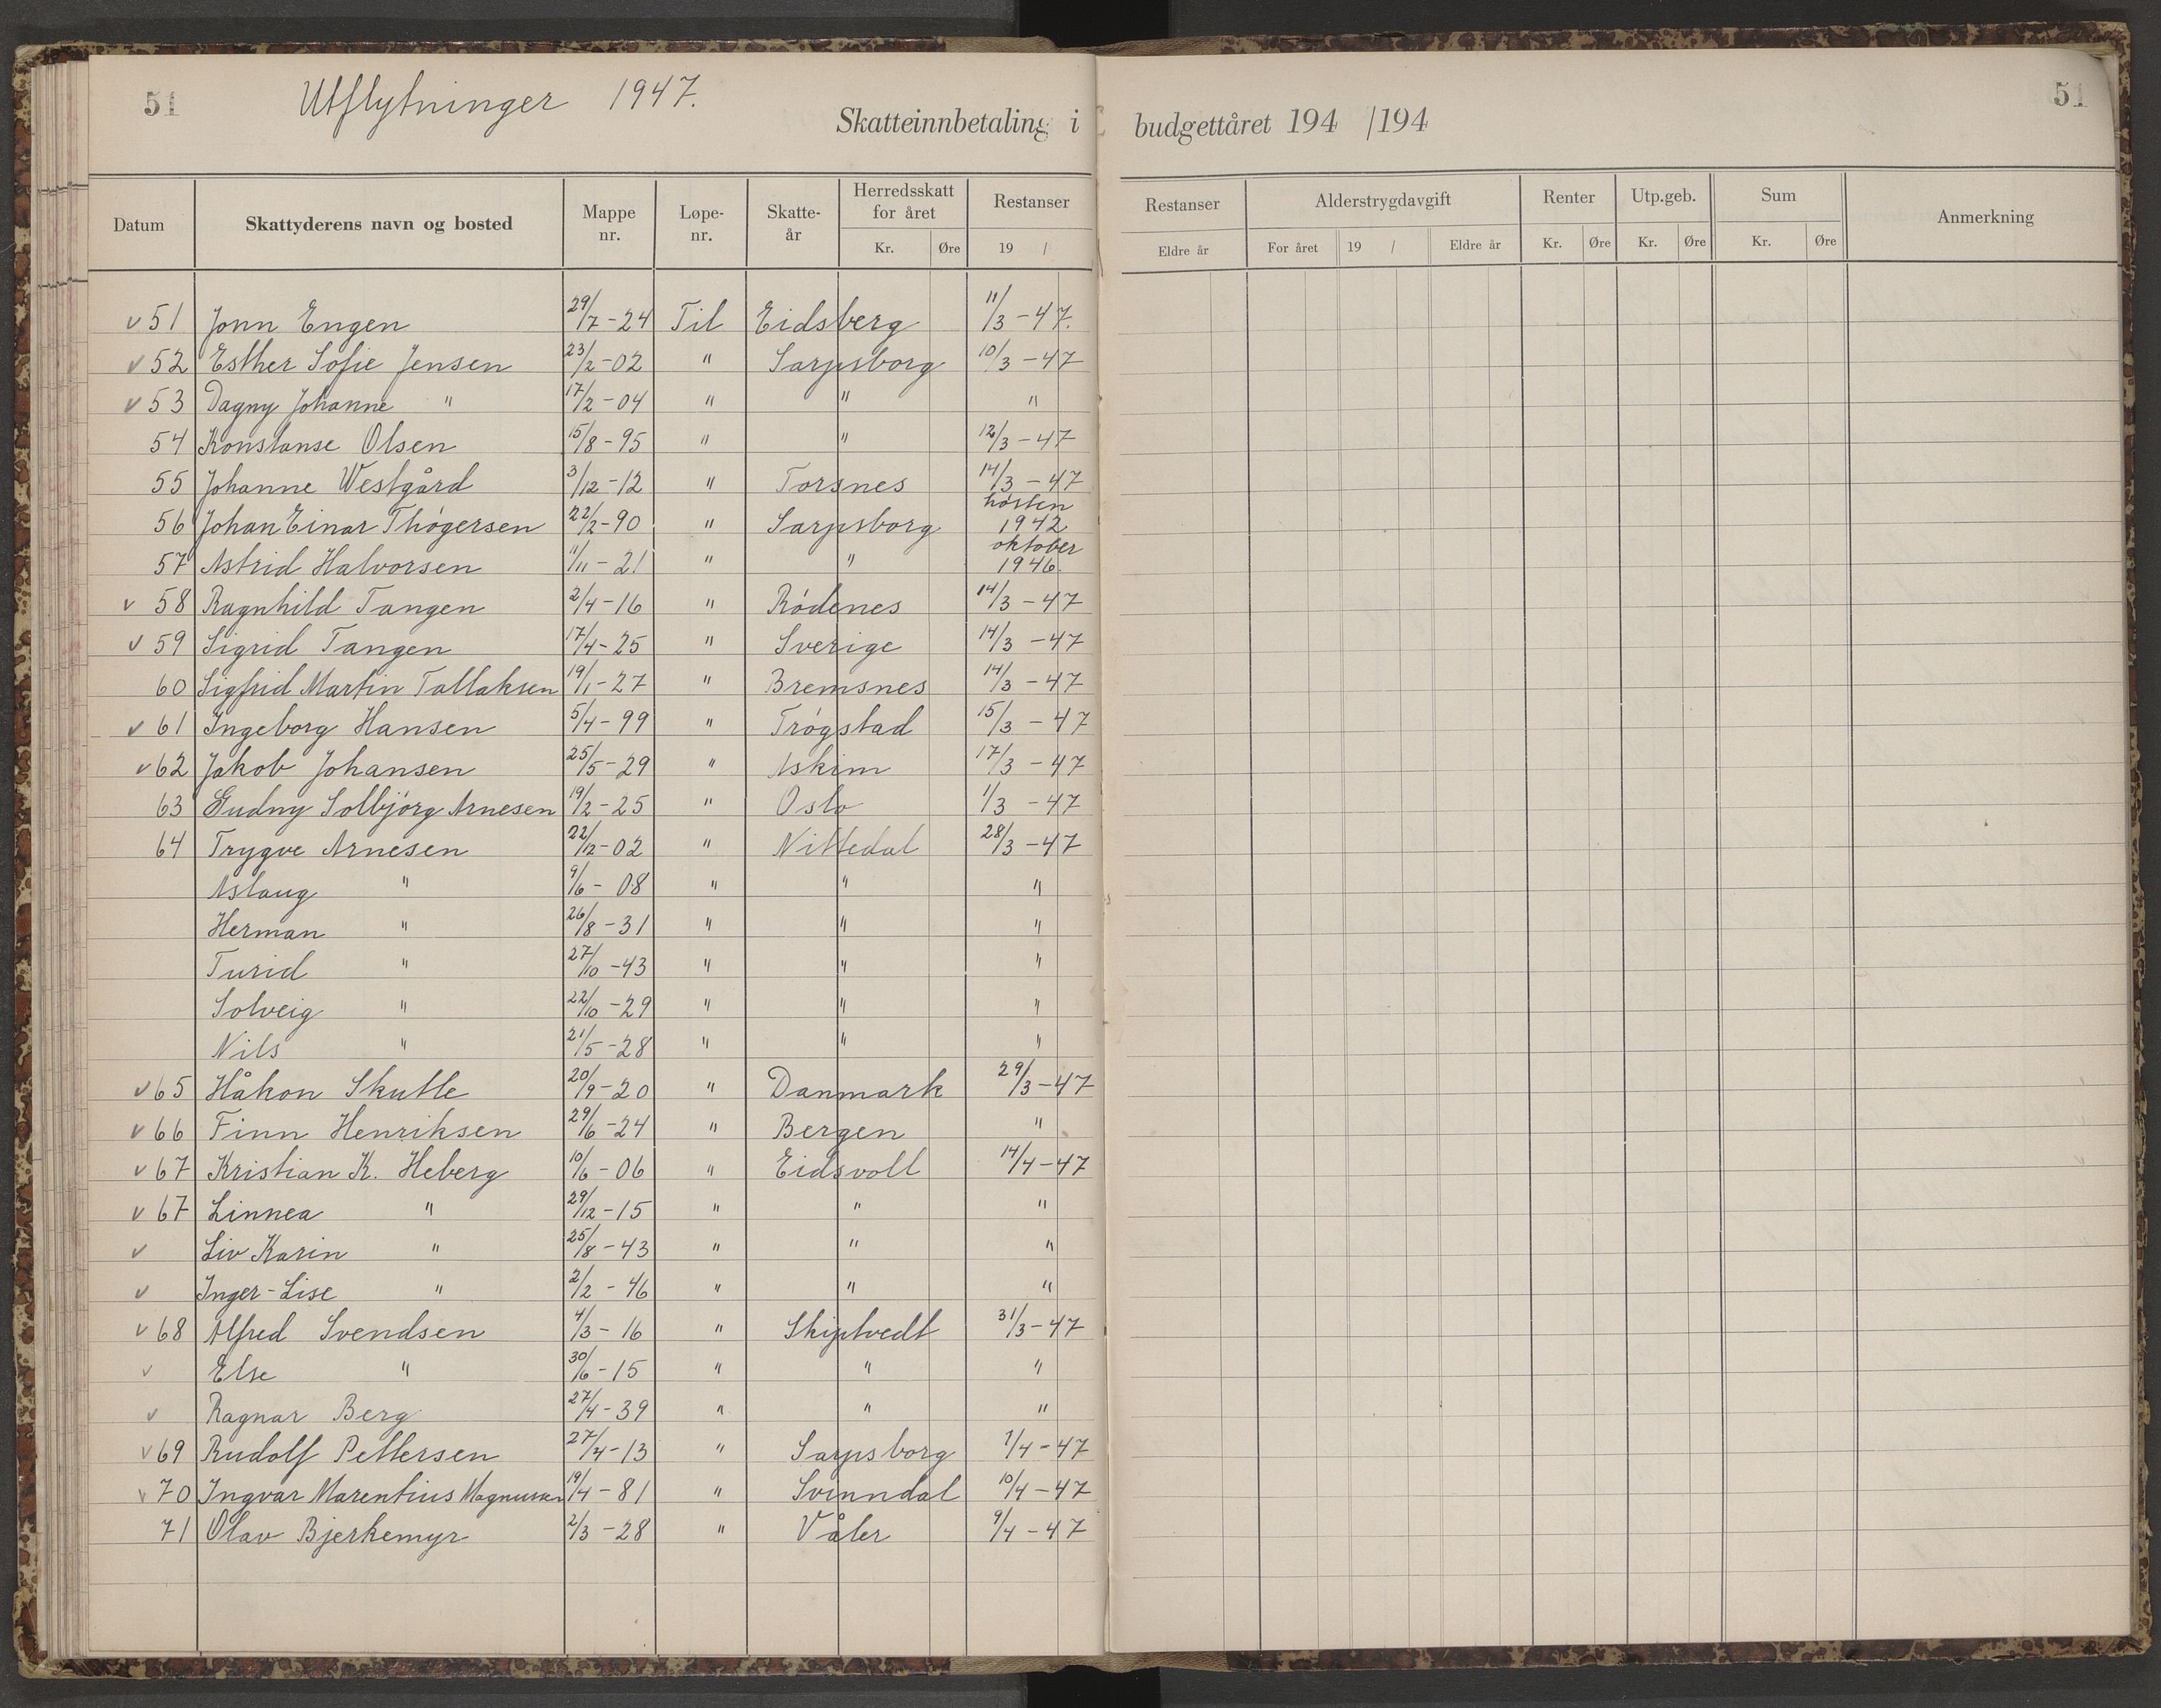 51 Utflytninger 1947. 51
Skatteinnbetaling i budgettåret 194 /194
Datum Skattyderens navn og bosted Mappe nr. Løpe-nr. Skatte-år Herredsskatt for året Kr. Øre Restanser 19 / Restanser Eldre år Alderstrygdavgift For året 19 / Eldre år Renter Kr. Øre Utp.geb. Kr. Øre Sum Kr. Øre Anmerkning
v 51 Jonn Engen 29/7-24 Til Eidsberg 11/3-47.
v 52 Esther Sofie Jensen 23/2-02 " Sarpsborg 10/3-47
v 53 Dagny Johanne " 17/2-04 " " "
54 Konstanse Olsen 15/8-95 " " 12/3-47
55 Johanne Westgård 3/12-12 " Torsnes 14/3-47
56 Johan Einar Thøgersen 22/2-90 " Sarpsborg høsten 1942
57 Astrid Halvorsen 11/11-21 " " oktober 1946.
v 58 Ragnhild Tangen 2/4-16 " Rødenes 14/3-47
v 59 Sigrid Tangen 17/4-25 " Sverige 14/3-47
60 Sigfrid Martin Tallaksen 19/1-27 " Bremsnes 14/3-47
v 61 Ingeborg Hansen 5/4-99 " Trøgstad 15/3-47
v 62 Jakob Johansen 25/5-29 " Askim 17/3-47
63 Gudny Solbjørg Arnesen 19/2-25 " Oslo 1/3-47
64 Trygve Arnesen 22/12-02 " Nittedal 28/3-47
Aslaug " 9/6-08 " " "
Herman " 26/8-31 " " "
Turid " 27/10-43 " " "
Solveig " 22/10-29 " " "
Nils " 21/5-28 " " "
v 65 Håkon Skutle 20/9-20 " Danmark 29/3-47
v 66 Finn Henriksen 29/6-24 " Bergen "
v 67 Kristian K. Heberg 10/6-06 " Eidsvoll 14/4-47
v 67 Linnea " 29/12-15 " " "
v Liv Karin " 25/8-43 " " "
v Inger-Lise " 2/2-46 " " "
v 68 Alfred Svendsen 4/3-16 " Skiptvedt 31/3-47
v Else " 30/6-15 " " "
v Ragnar Berg 27/4-39 " " "
v 69 Rudolf Pettersen 27/4-13 " Sarpsborg 1/4-47
v 70 Ingvar Marentius Magnussen 19/4-81 " Svinndal 10/4-47
71 Olav Bjerkemyr 2/3-28 " Våler 9/4-47